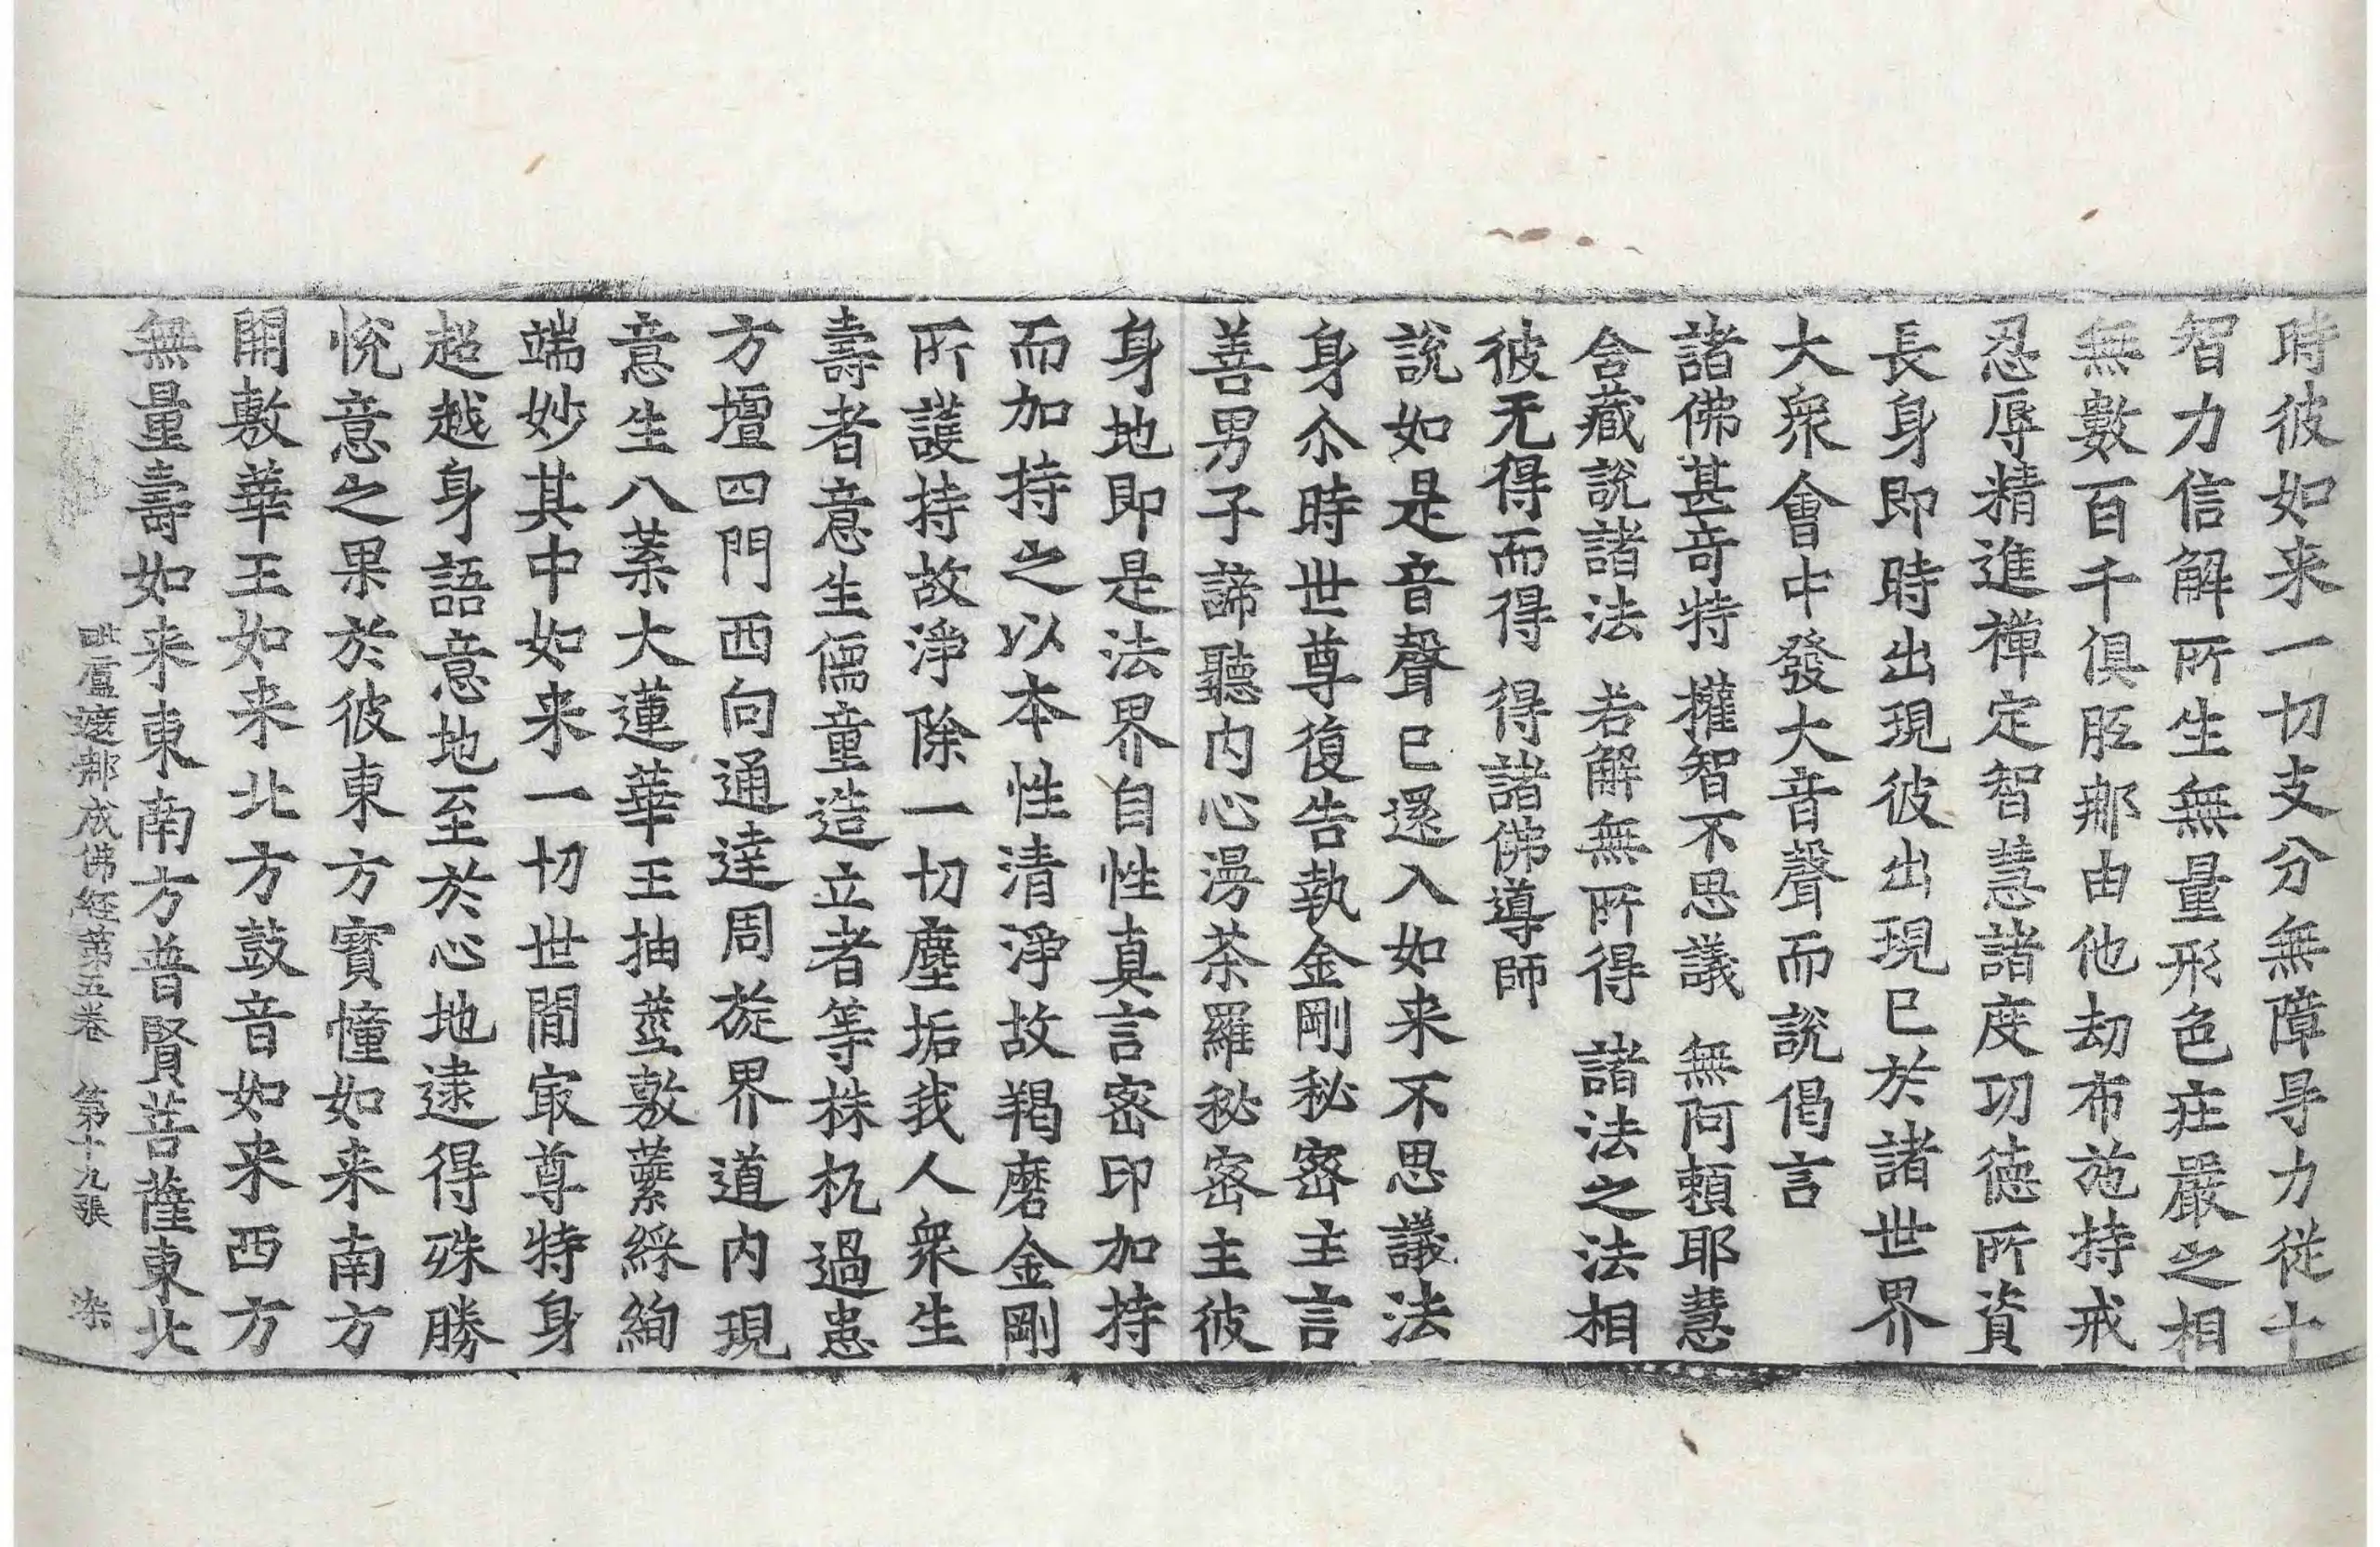 時彼如来一切支分無障㝵力從十
智力信解所生無量形色庄嚴之相
無數百千俱胝那由他劫布施持戒
忍辱精進禅定智慧諸度功德所資
長身即時出現彼出現已於諸世界
大衆會中發大音聲而說偈言
諸佛甚奇特 權智不思議 無阿頼耶慧
含藏說諸法 若解無所得 諸法之法相
彼无得而得 得諸佛導師
說如是音聲已還入如来不思議法
身尒時世尊復告執金剛秘密主言
善男子諦聽内心漫茶羅秘密主彼
身地即是法界自性真言密印加持
而加持之以本性清淨故羯磨金剛
所護持故淨除一切塵垢我人衆生
壽者意生儒童造立者等株杌過患
方壇四門西向通達周旋界道内現
意生八葉大蓮華王抽莖敷蘂綵絢
端妙其中如来一切世閒㝡尊特身
超越身語意地至於心地逮得殊勝
悅意之果於彼東方寳幢如来南方
開敷華王如来北方鼓音如来西方
無量壽如来東南方普賢菩薩東北
毗盧遮那成佛經第五卷 第十九張 染